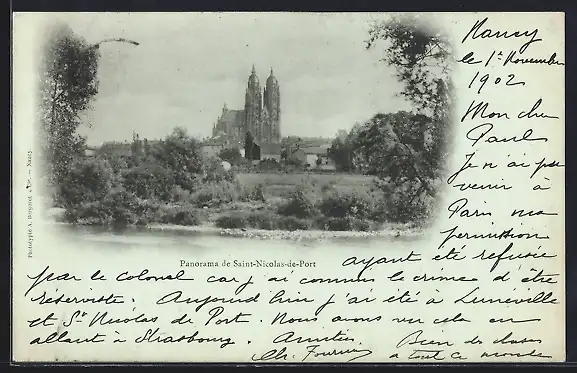 Nancy
le 1er Novembre
1902
Mon cher
Paul
Je n'ai pas
venir à
Paris ma
permission
Phototypie A. Bergeret & Cie. - Nancy
Panorama de Saint-Nicolas-de-Port
ayant été refusée
par le Colonel car j'ai commis le crime d'être
réserviste. Aujourd'hui j'ai été à Lunéville
et St Nicolas de Port. Nous avons vu cela en
allant à Strasbourg. Amitiés. Bien des choses
Ch. Fournier à tout ce monde